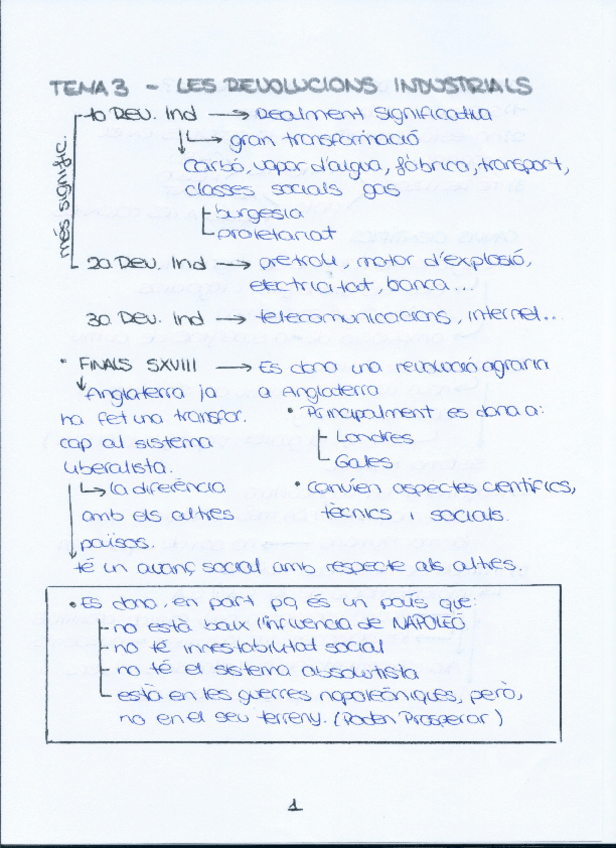 TEMA 3 - LES REVOLUCIONS INDUSTRIALS
més signific.
1a Rev. Ind → Realment significativa
↳ gran transformació
Carbó, vapor d'aigua, fàbrica, transport,
classes socials gas
burgesia
proletariat
2a Rev. Ind → petroli, motor d'explosió,
electricitat, banca...
3a Rev. Ind → telecomunicacions, internet...
• FINALS SXVIII → Es dona una revolució agrària
a Anglaterra
Anglaterra ja
ha fet una transfor.
cap al sistema
liberalista.
↳ la diferència
amb els altres
països.
té un avanç social amb respecte als altres.
• Principalment es dona a:
Londres
Gales
• Canvien aspectes científics,
tècnics i socials.
• Es dona, en part pq és un país que:
no està baix l'influencia de NAPOLEÓ
no té innestabilitat social
no té el sistema absolutista
està en les guerres napoleòniques, però,
no en el seu terreny. (Poden Prosperar)
1